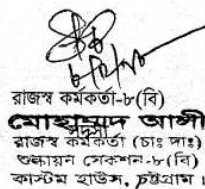 রাজস্ব কর্মকর্তা-৮(বি)
মোহাম্মদ আলী
রাজস্ব কর্মকর্তা (চাঃ দাঃ)
শুল্কায়ন সেকশন-৮(বি)
কাস্টম হাউস, চট্টগ্রাম।